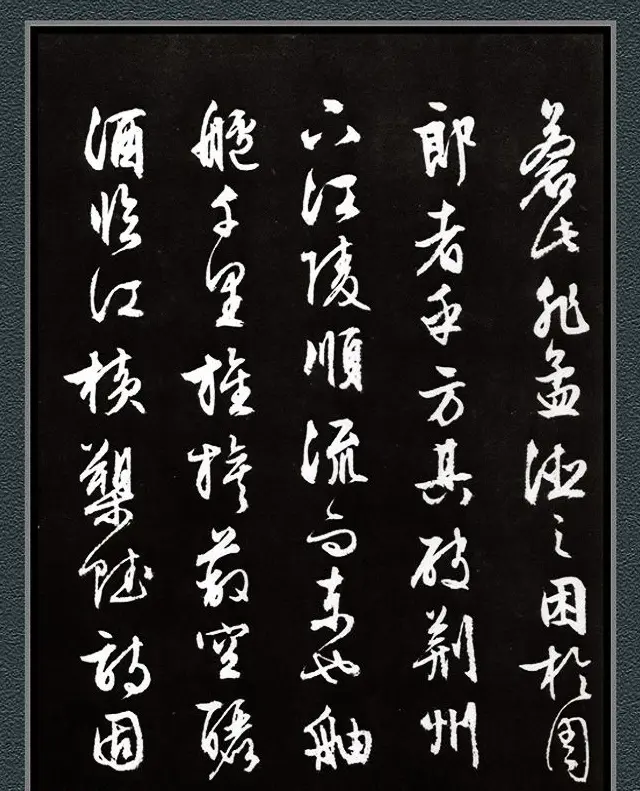 蒼此非孟德之困於周
郎者乎方其破荆州
下江陵順流而東也舳
艫千里旌旗蔽空釃
酒臨江橫槊賦詩固